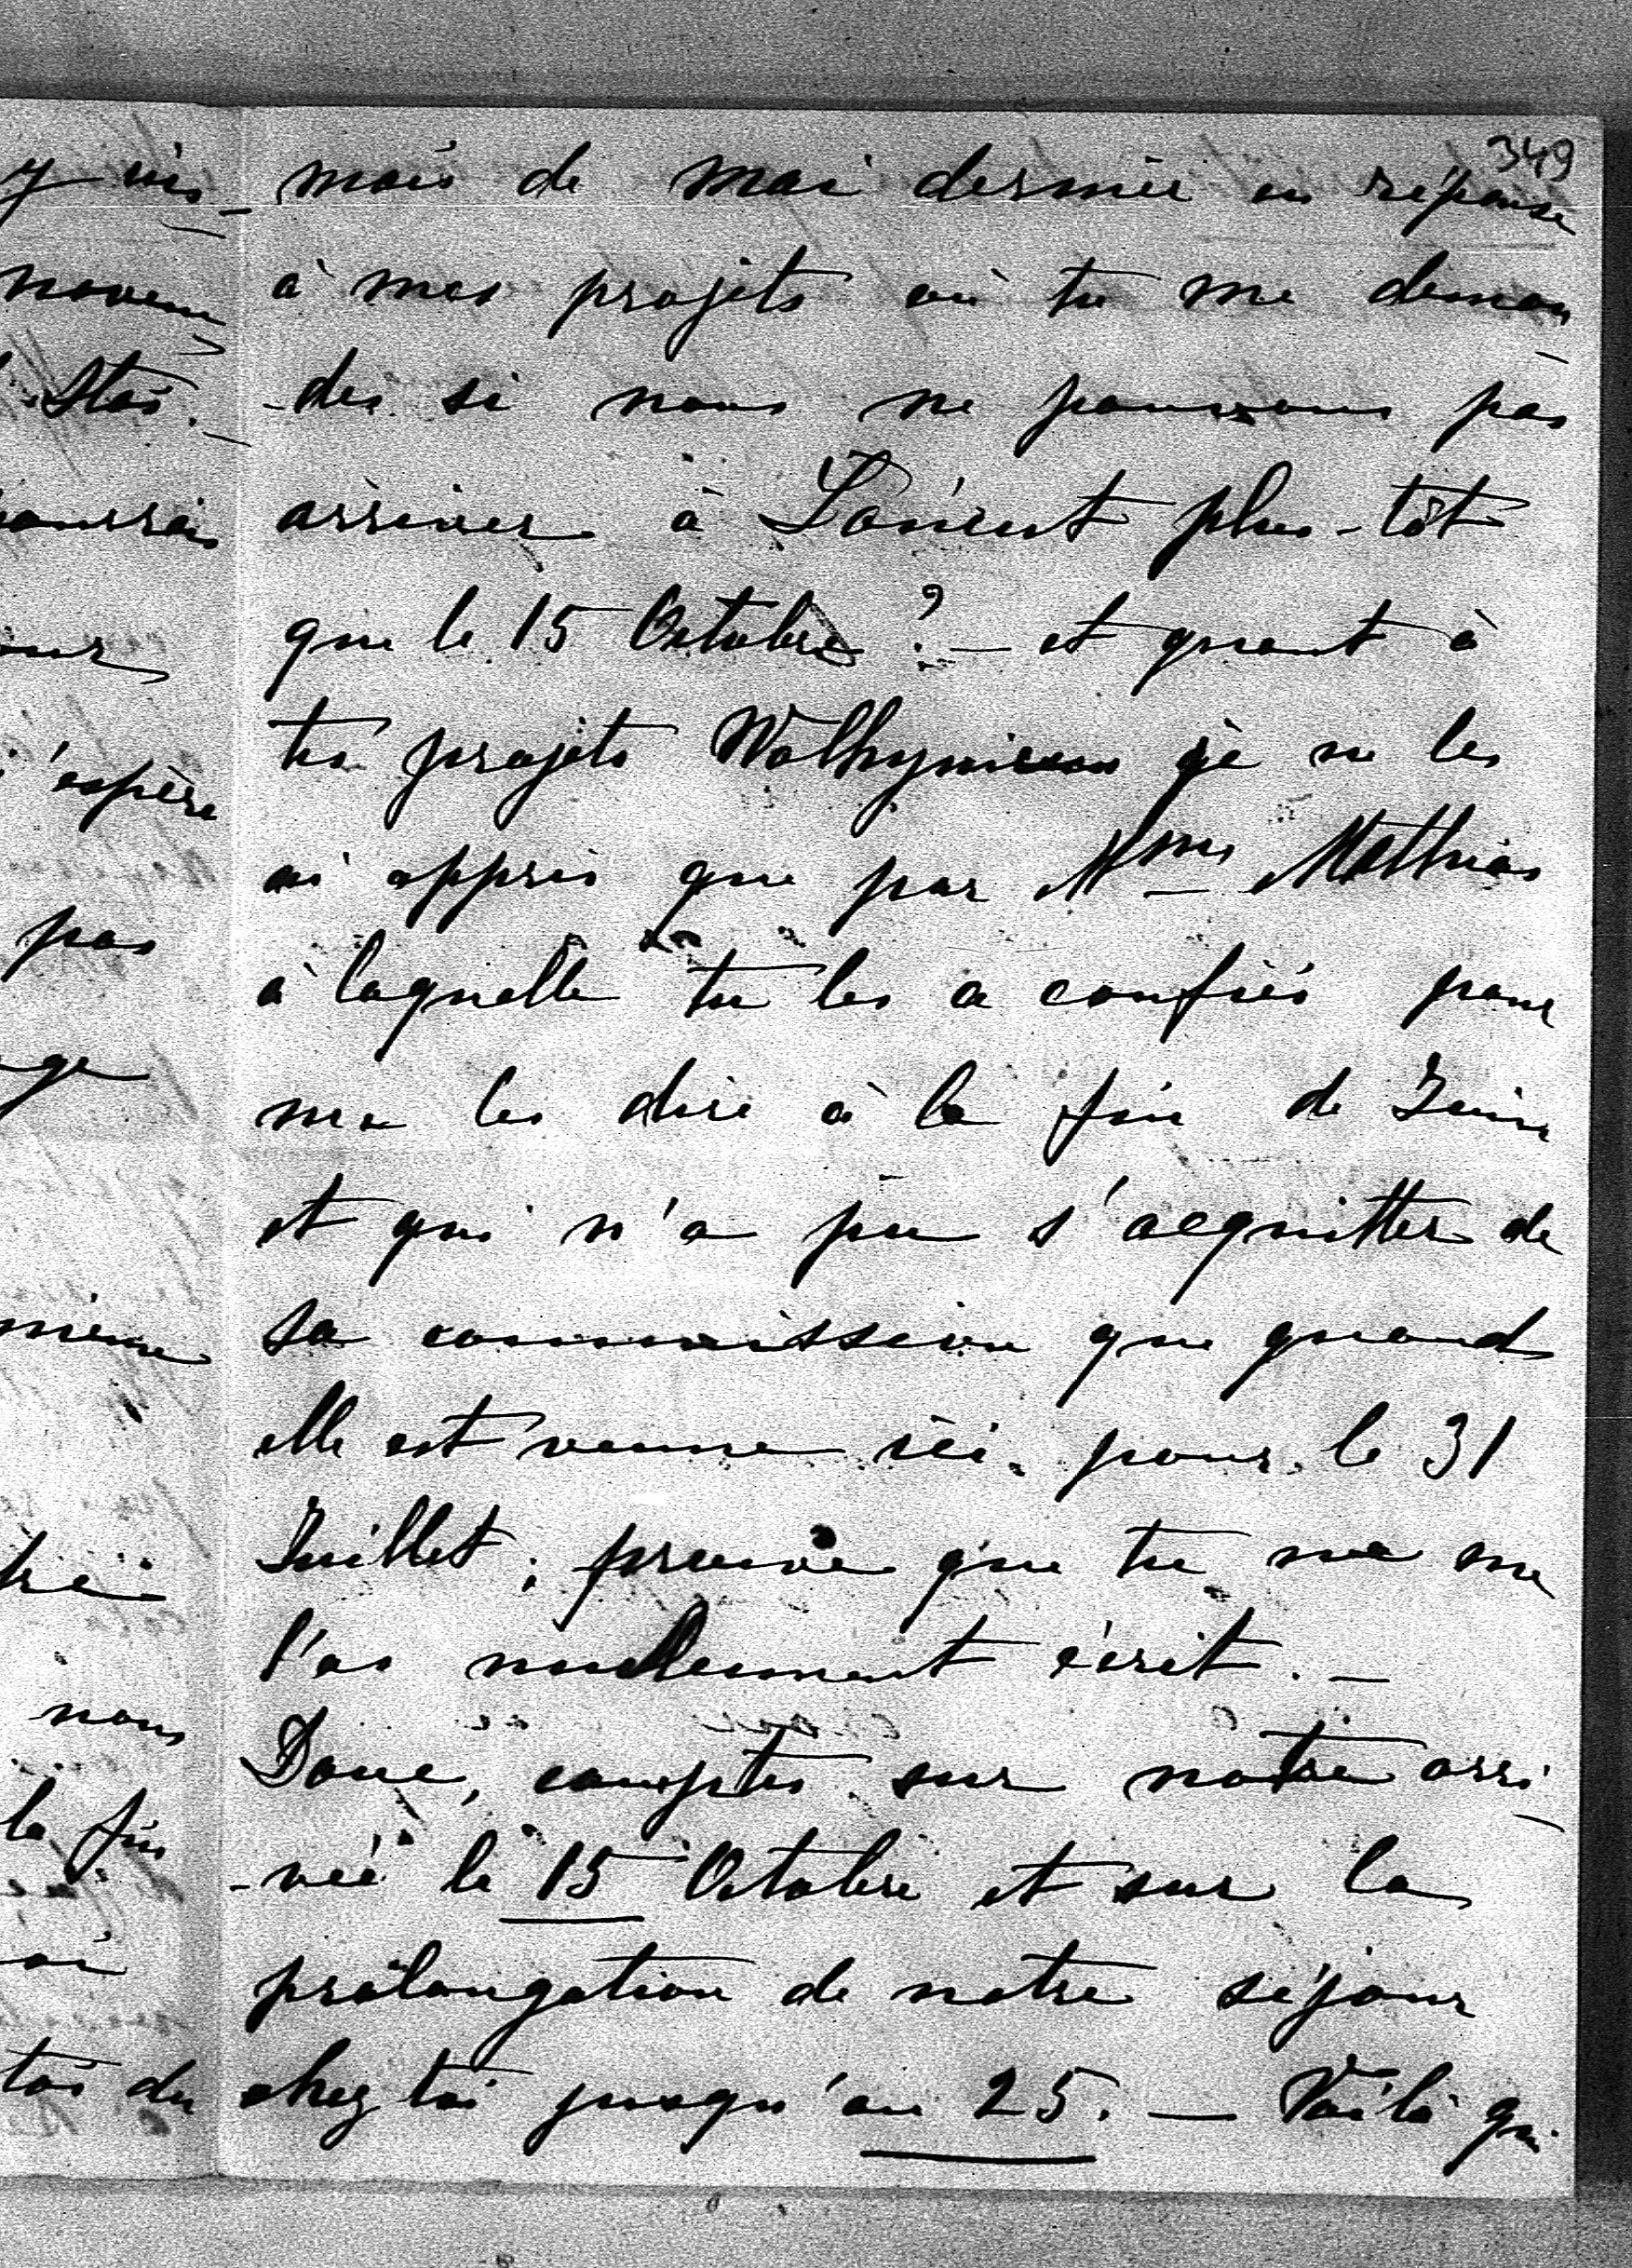 349
mois de mai dernier en réponse
à mes projets où tu me deman
-des si nous ne pouvons pas
arriver à Łańcut plus-tôt
que le 15 Octobre ? — et quant à
tes projets Wolhyniens je ne les
ai appris que par Mme Mathias
à laquelle tu les a confiés pour
me les dire à la fin de Juin
et qui n'a pu s'acquitter de
sa commission que quand
elle est venue ici pour le 31
Juillet ; preuve que tu ne me
l'as nullement écrit. —
Donc, comptes sur notre arri
-vée le 15 Octobre et sur la
prolongation de notre séjour
chez toi jusqu'au 25. — Voilà qui
y vis_
Stas.
pourrais
j'espère
pas
nous
la fin